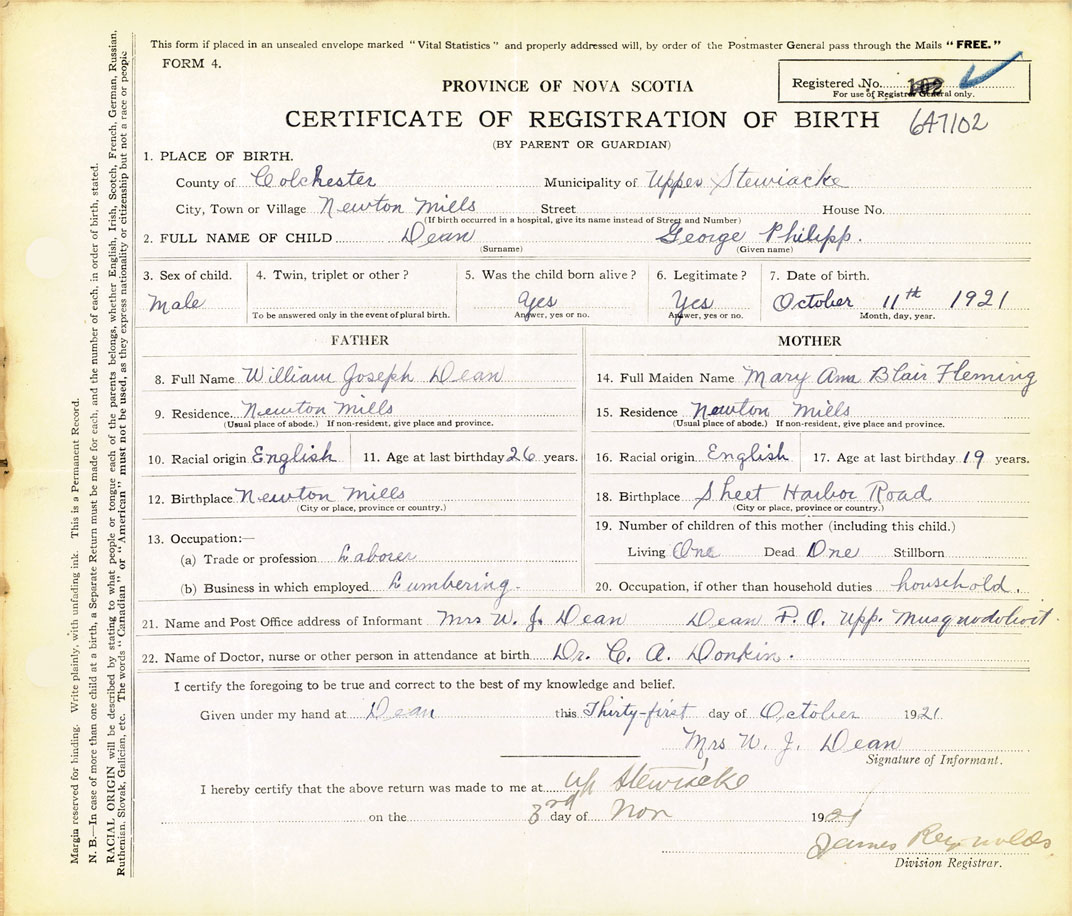 This form if placed in an unsealed envelope marked "Vital Statistics" and properly addressed will, by order of the Postmaster General pass through the Mails "FREE."
FORM 4.
PROVINCE OF NOVA SCOTIA
Registered No. 102
For use of Registrar General only.
CERTIFICATE OF REGISTRATION OF BIRTH
647102
(BY PARENT OR GUARDIAN)
1. PLACE OF BIRTH.
County of Colchester Municipality of Upper Stewiacke
City, Town or Village Newton Mills Street House No.
(If birth occurred in a hospital, give its name instead of Street and Number)
2. FULL NAME OF CHILD Dean George Philipp.
(Surname) (Given name)
3. Sex of child. 4. Twin, triplet or other? 5. Was the child born alive? 6. Legitimate? 7. Date of birth.
Male Yes Yes October 11th 1921
To be answered only in the event of plural birth. Answer, yes or no. Answer, yes or no. Month, day, year.
FATHER MOTHER
8. Full Name William Joseph Dean 14. Full Maiden Name Mary Ann Blair Fleming
9. Residence Newton Mills 15. Residence Newton Mills
(Usual place of abode.) If non-resident, give place and province. (Usual place of abode.) If non-resident, give place and province.
10. Racial origin English 11. Age at last birthday 26 years. 16. Racial origin English 17. Age at last birthday 19 years.
12. Birthplace Newton Mills 18. Birthplace Sheet Harbor Road
(City or place, province or country.) (City or place, province or country.)
13. Occupation:— 19. Number of children of this mother (including this child.)
(a) Trade or profession Laborer Living One Dead One Stillborn
(b) Business in which employed Lumbering. 20. Occupation, if other than household duties household.
21. Name and Post Office address of Informant Mrs W. J. Dean Dean P.O. Upp. Musquodoboit.
22. Name of Doctor, nurse or other person in attendance at birth Dr. C. A. Donkin.
I certify the foregoing to be true and correct to the best of my knowledge and belief.
Given under my hand at Dean this Thirty-first day of October 1921.
Mrs W. J. Dean
Signature of Informant.
I hereby certify that the above return was made to me at up Stewiacke
on the 3rd day of Nov 1921
James Reynolds
Division Registrar.
Margin reserved for binding. Write plainly, with unfading ink. This is a Permanent Record.
N. B.—In case of more than one child at a birth, a Separate Return must be made for each, and the number of each, in order of birth, stated.
RACIAL ORIGIN will be described by stating to what people or tongue each of the parents belongs, whether English, Irish, Scotch, French, German, Russian,
Ruthenian, Slovak, Galician, etc. The words "Canadian" or "American" must not be used, as they express nationality or citizenship but not a race or people